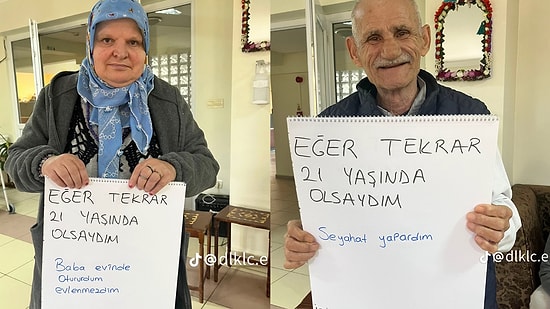 EĞER TEKRAR
21 YAŞINDA
OLSAYDIM
Baba evinde
otururdum
evlenmezdim
@dlklc.e
EĞER TEKRAR
21 YAŞINDA
OLSAYDIM
Seyahat yapardım
@dlklc.e